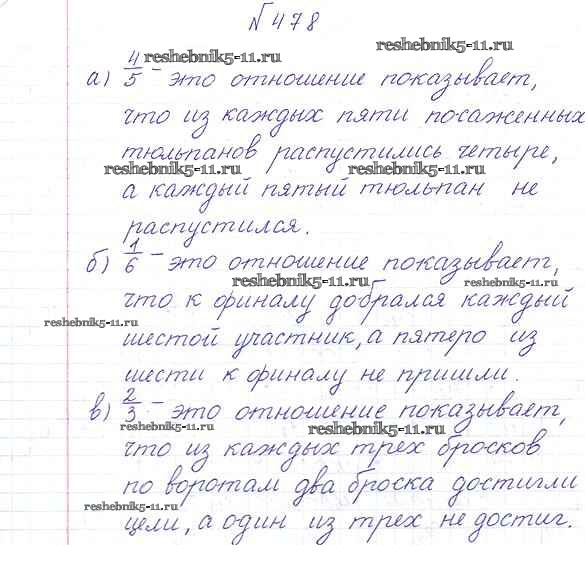 №478
reshebnik5-11.ru
reshebnik5-11.ru
а) 4/5 – это отношение показывает,
что из каждых пяти посаженных
reshebnik5-11.ru
тюльпанов распустились четыре,
reshebnik5-11.ru
reshebnik5-11.ru
а каждый пятый тюльпан не
распустился.
б) 1/6 – это отношение показывает,
reshebnik5-11.ru
reshebnik5-11.ru
что к финалу добрался каждый
reshebnik5-11.ru
шестой участник, а пятеро из
шести к финалу не пришли.
в) 2/3 – это отношение показывает,
reshebnik5-11.ru
reshebnik5-11.ru
что из каждых трех бросков
по воротам два броска достигли
reshebnik5-11.ru
цели, а один из трех не достиг.